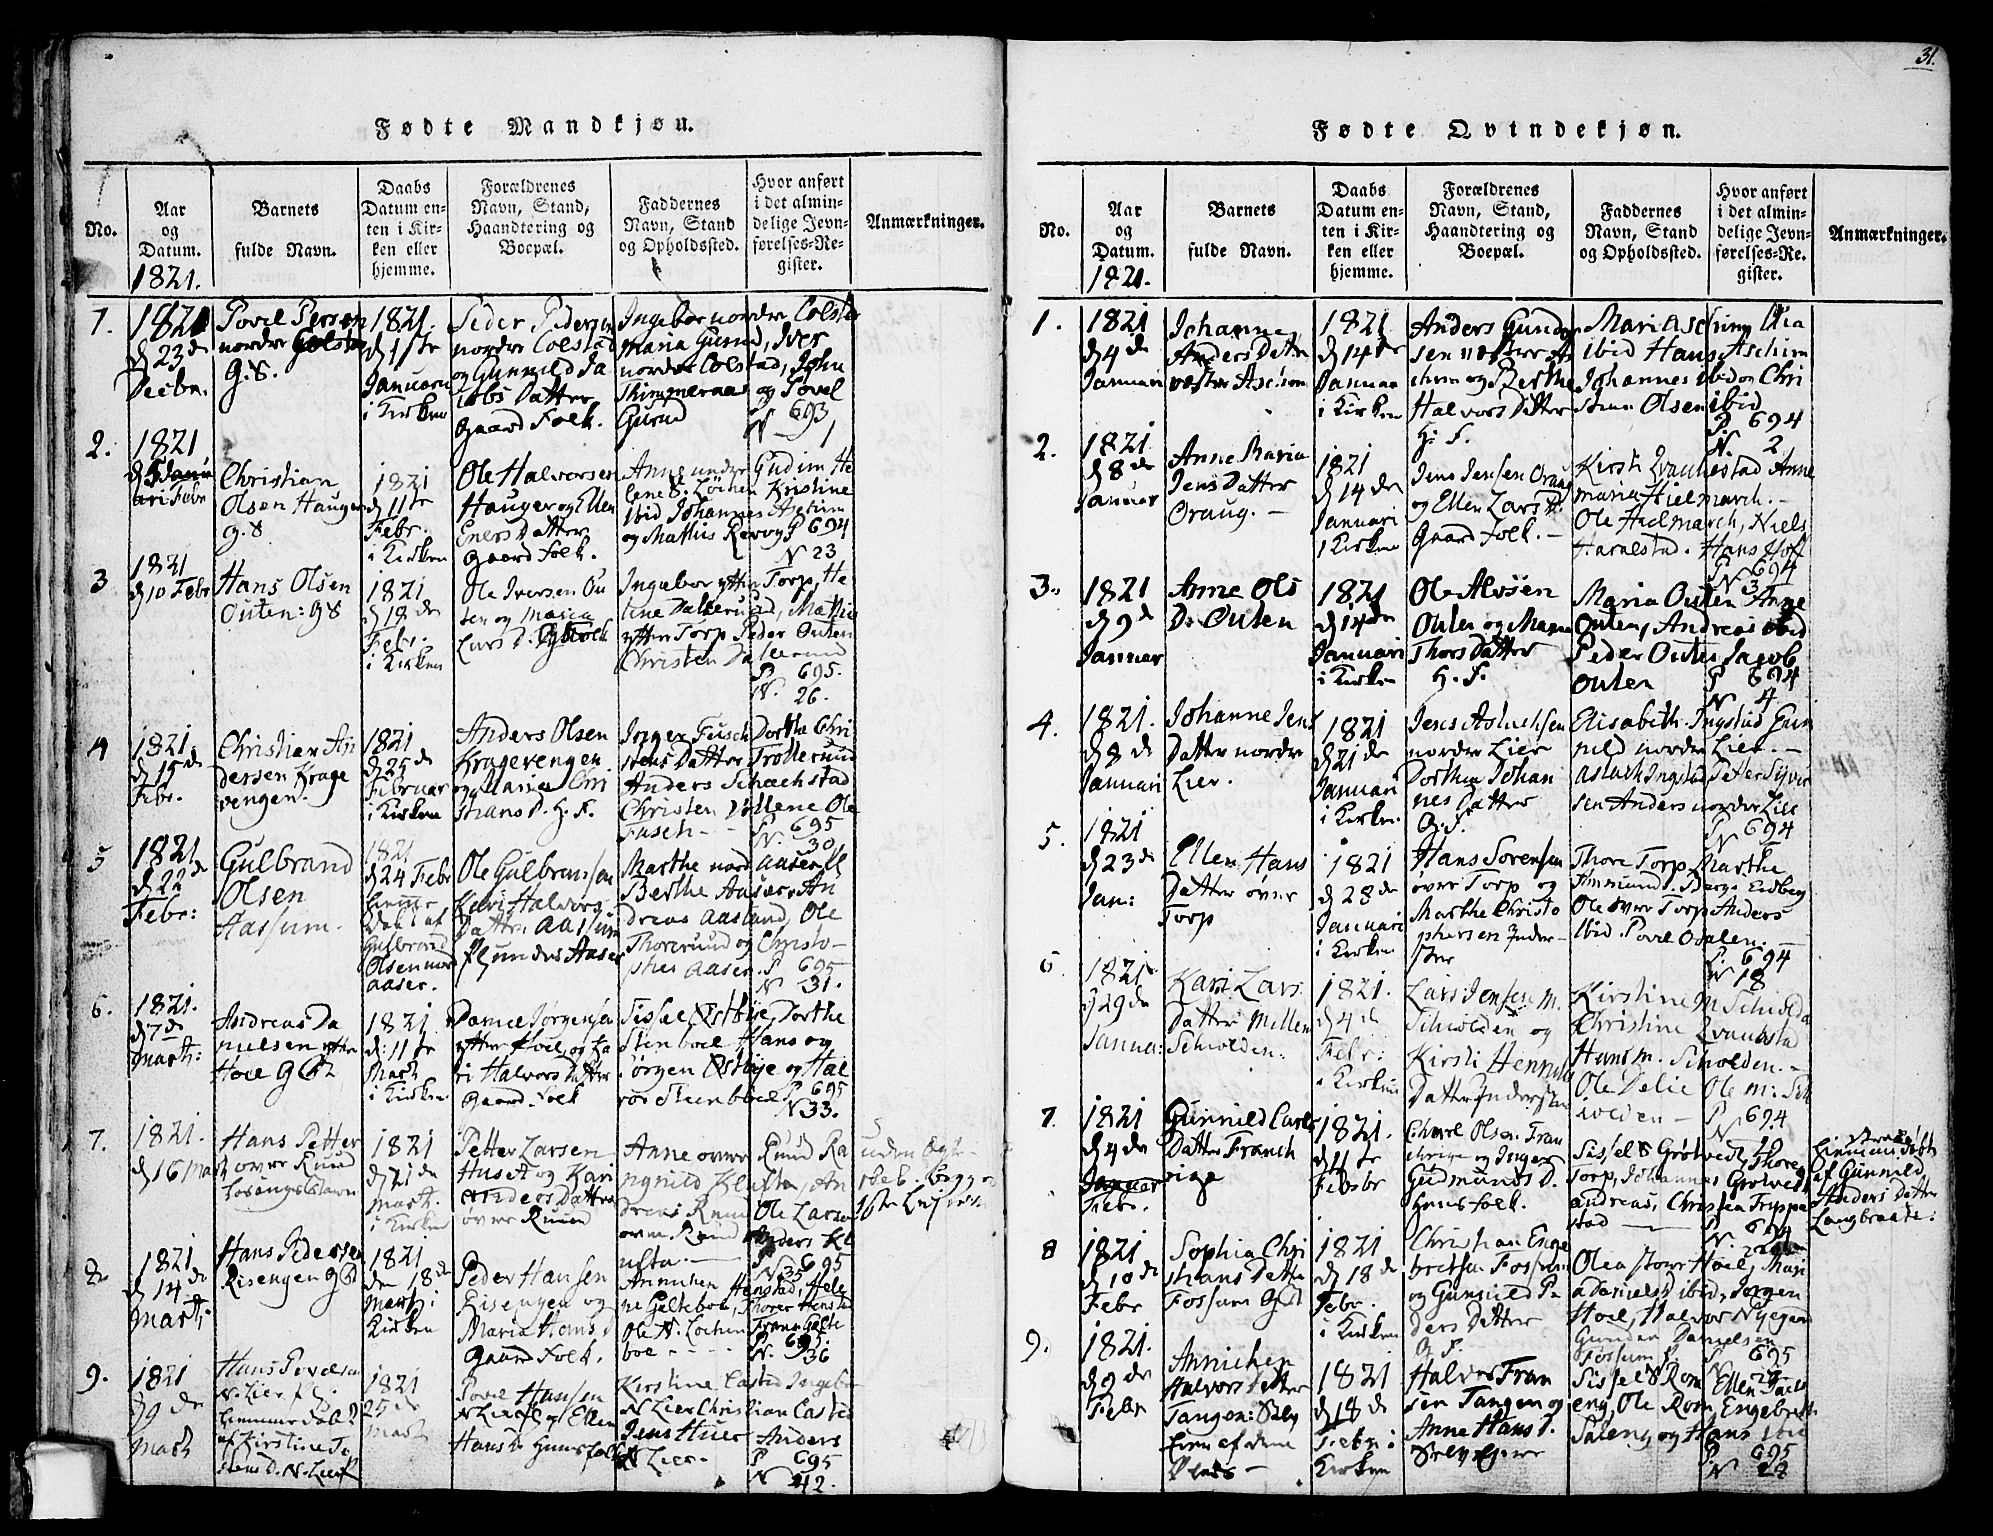 31.
Fødte Mandkjøn.
No.
Aar
og
Datum.
1821.
Barnets
fulde Navn.
Daabs
Datum en-
ten i Kir-
ken eller
hjemme.
Forældrenes
Navn, Stand,
Haandtering og
Boepæl.
Faddernes
Navn, Stand
og Opholdssted.
Hvor anført
i det almin-
delige Jevn-
førelses-Re-
gister.
Anmærkninger.
1.
1821
d 23 de
Decbr.
Povel Persen
nordre Colstad
G. S.
1821.
d 1 ste
Januarii
i Kirken
Peder Pedersen
nordre Colstad
og Gunnild Ja
cobs Datter
Gaard Folk.
Ingebor nordre Colstad
Maria Gurud, Iver
nordre Colstad, John
og Povel
Gurud
693
2.
1821
Febr
Christian
Olsen Hauger
g. S
1821
d 11 te
Febr.
i Kirken
Ole Halvorsen
Hauger og Ellen
Datter
Gaard Folk.
Anne undre Gudim He
lene S. Løchen Kristine
ibid Johannes Aschim
og Mathis
P 694
N 23
3
1821
d 10 Febr
Hans Olsen
Outen: g S
1821
d 18 de
Febr.
i Kirken
Ole Iversen Ou
ten og Maria
Lars D.
Ingebor ytter Torp, He
line Dallerud, Mathia
ytter Torp Peder Outen
Christen Dallerud
P. 695.
N. 26.
4
1821.
d 15 de
Febr.
Christian An
dersen Krage
vengen.
1821
d 25 de
Februar
i Kirken
Anders Olsen
Kragevengen
og Maria Chri
stians D. H. F.
Inger Fusch Dortha Chri
stens Datter Trollerud
Anders Schachstad
Christen Ole
Fusch
P. 695
N. 30
5
1821
d 22 de
Febr:
Gulbrand
Olsen
Aassum.
1821
d 24 Febr
hieme
Døbt af
Gulbrand
Olsen nor
aaser.
Ole Gulbransen
Kari Halvors
Datter Aassum
under Aaser
Marthe nord Aaser
Berthe Aaser, An
dreas Aaslund, Ole
Thorerud og Christo-
pher Aaser.
P 695
N 31.
6.
1821.
d 7 de
Marti:
Andreas Da
nielsen ytter
Hoel
1821
d: 11 te
Marti
i Kirken
Daniel Jørgensen
ytter Hoel og Ka
ri Halvors Datter
Gaard Folk
Sissel Østbye, Dorthe
Stenboel Hans og
Jørgen Østbye og Hal
vor Stenboel
P 695
N 33.
7.
1821.
d 16 Mart
Hans Petter
over Ruud
1821
d 21 de
Mart.
i Kirken
Petter Larsen
Huset og Kari
Anders Datter
over Ruud
Anne over Ruud Ra
gnild Klufta, An
dreas Ruud Ole Larsen
over Ruud Anders Kl
ufta
N 35 695
uden Ægte-
skab. begges
1ste Leiermaal
8.
1821
d 14 de
Marti
Hans Pedersen
Risengen
1821
den 18 de
Marti
Kirken
Peder Hansen
Risengen og
Maria Hans D
Gaard Folk.
Annichen Henstad, Hele
ne Galteboe, Thorer Henstad
Ole N. Lochen Frans Galte
boe
P. 695.
N. 36
9.
1821
d 9 de
Marti
Hans Povelsen
N. Lier
hiemme døbt
af Kirstine To
stens D. N. Lier
1821
25 de
Marti
Povel Hansen
N Lier og Ellen
Hans D. Huusfolk
Kirstine Castad Ingebor
N Lier Christian Castad
Jens Huer Anders
N Lier.
P 695
N 42.
Fødte Qvindekjøn.
No.
Aar
og
Datum.
1821.
Barnets
fulde Navn.
Daabs
Datum en-
ten i Kir-
ken eller
hjemme.
Forældrenes
Navn, Stand,
Haandtering og
Boepæl.
Faddernes
Navn, Stand
og Opholdssted.
Hvor anført
i det almin-
delige Jevn-
førelses-Re-
gister.
Anmærkninger.
1.
1821
d 4 de
Januari
Johanne
Anders Datter
vester Aschim
1821
d 14 de
Januar
i Kirken
Anders Gunder
sen vester As
chim og Berthe
Halvors Datter
H. F.
Mari Aschim Olia
ibid Hans Aschim
Johannes ibid og Chri
stian Olsen ibid
P. 694
N. 2
2.
1821
d 8 de
Januar
Anne Maria
Jens Datter
Oraug.
1821
d 14 de
Januari
i Kirken
Jens Jensen Oraug
og Ellen Lars D.
Gaard Folk.
Kirsti Anne
Maria Hielmarch.
Ole Hielmarch, Niels
Haralstad. Hans Hoff
P 694
N 3
3.
1821
d 9 de
Januar
Anne Ols
D. Outen
1821
d 14 de
Januari
i Kirken
Ole Alvsen
Outen og Marie
Thors Datter
H. F.
Maria Outen Anne
Outen, Andreas ibid
Peder Outen Jacob
Outen
P 694
N 4
4.
1821.
d 8 de
Januari
Johanne Jens
Datter nordre
Lier.
1821
d 21 de
Januari
i Kirken
Jens Aslachsen
nordre Lier
Dorthea Johan
nes Datter
G. F.
Elisabeth Ingstad Gun
nild nordre Lier.
Aslach Ingstad Petter Syver
sen Anders nordre Lier
P 694
5.
1821
d 23 de
Jan:
Ellen Hans
Datter over
Torp
1821
d 28 de
Januari
i Kirken
Hans Sorensen
over Torp og
Marthe Christo
phersen Inder-
ster
Thore Torp, Marthe
Ammund D. Berge Eidberg
Ole over Torp Anders
ibid. Povel Ovalen.
P. 694
N 18
6
1821.
d 29 de
Janua:
Kari Lars
Datter Mellem
Schiolden:
1821.
d 4 de
Febr:
i Kirken
Lars Jensen M.
Schiolden og
Kirsti Hennings
Datter Inderster
Kirstine M Schiolden
Christine
Hans M. Schiolden.
Ole Delie Ole M: Sch
iolden
P. 694
7
1821
d 4 de
Januar
Febr.
Gunnild Carls
Datter Franch
rige
1821.
d 11 te
Febr
Charl Olsen Fran
chrige og Inger
Gudmunds D.
Huusfolk.
Sissel S Grotvedt, Thore
Torp, Johannes Grotvedt
Andreas, Christen Trippe
stad
P 694
hiemmedøbt
af Gunnild
Anders Datter
Langbraate:
8
1821
d 10 de
Febr
Sophia Chri
stians Datter
Fossum
1821
d 18 de
Febr.
i Kirken
Christian Enge
bretsen Fossum
og Gunnild Pe
ders Datter
G F.
Olea store Hoel, Mari
a Daniels D ibid, Jørgen
Hoel, Halvor Nygaard
Gunder Danielsen
Fossum
P 695
9.
1821.
d 9 de
Febr
Annichen
Halvors Datter
Tangen: Selv
Eyer af dette
Plads
1821
d 18 de
Febr i
Kirken
Halvor Fran
sen Tangen og
Anne Hans D.
Selv Eyere
Sissel S Rom, Ellen Sale
eng, Ole Rom, Engebret
Saleng og Hans ibid
P. 695
N 28